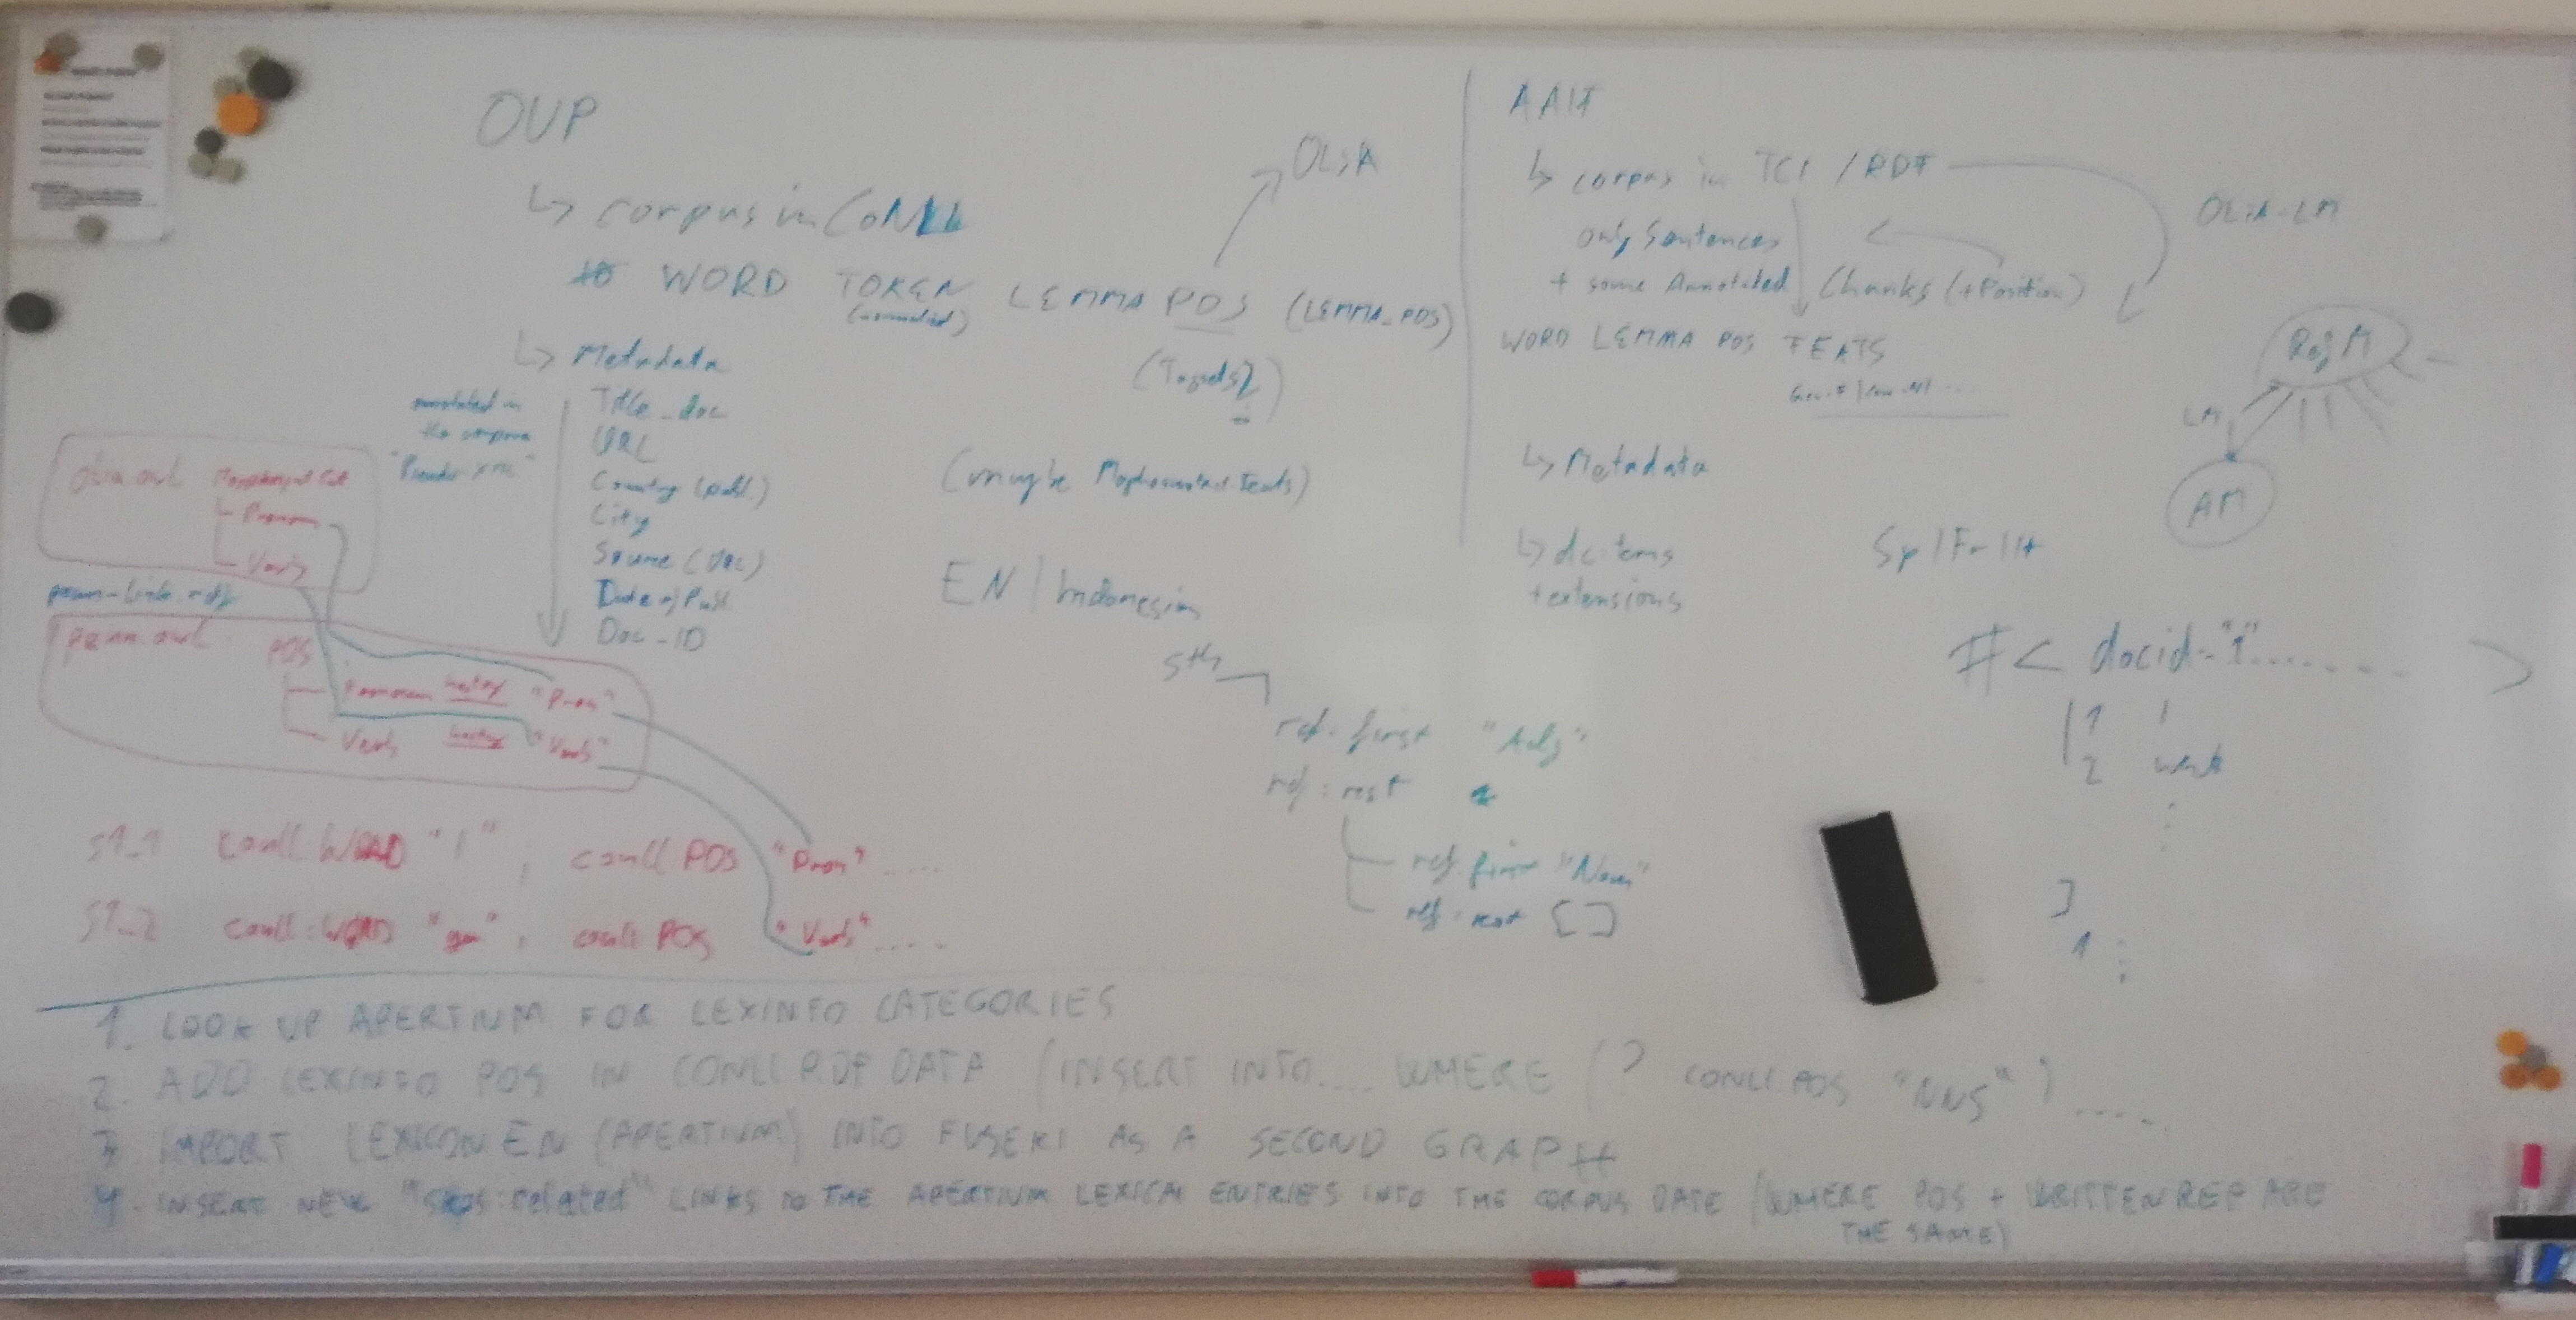 OUP
↳ corpus in CoNLL
WORD TOKEN LEMMA POS (LEMMA_POS)
OLiA
↳ Metadata
annotated in
the
"Pseudo xml"
Title_doc
URL
Country (publ.)
City
Source (Doc)
Date of Publ
Doc_ID
(maybe
EN | Indonesian
olia.owl
Pronoun
Verb
penn-link.rdf
penn.owl
POS
Pronoun hastag "Pron"
Verb hastag "Verb"
s1_1 conll:WORD "I" ; conll:POS "Pron" .....
s1_2 conll:WORD "go" ; conll:POS "Verb" ....
sth
rdf:first "Adj"
rdf:rest
rdf:first "Noun"
rdf:rest []
↳ corpus in TCI / RDF
only Sentences
+ some Annotated Chunks (+Position)
WORD LEMMA POS FEATS
↳ Metadata
↳ dc:terms
+ extensions
Sp | Fr | It
OLiA-LM
RefM
LM
AM
#< docid="1"....... >
1 I
2 went
1
1. LOOK UP APERTIUM FOR LEXINFO CATEGORIES
2. ADD LEXINFO POS IN CONLL RDF DATA (INSERT INTO.... WHERE (? CONLL:POS "NNS") .....
3 IMPORT LEXICON EN (APERTIUM) INTO FUSEKI AS A SECOND GRAPH
4. INSERT NEW "skos:related" LINKS TO THE APERTIUM LEXICAL ENTRIES INTO THE CORPUS DATE (WHERE POS + WRITTENREP ARE
THE SAME)